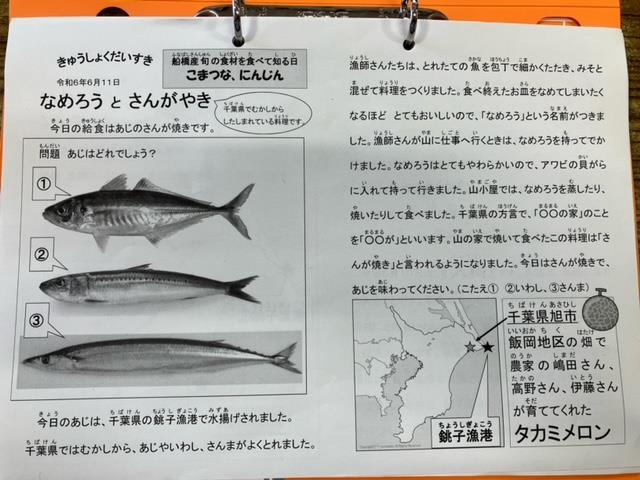 きゅうしょくだいすき
船橋産旬の食材を食べて知る日
こまつな、にんじん
令和6年6月11日
なめろう と さんがやき
千葉県でむかしから
したしまれている料理です。
今日の給食はあじのさんが焼きです。
問題 あじはどれでしょう?
①
②
③
今日のあじは、千葉県の銚子漁港で水揚げされました。
千葉県ではむかしから、あじやいわし、さんまがよくとれました。
漁師さんたちは、とれたての魚を包丁で細かくたたき、みそと
混ぜて料理をつくりました。食べ終えたお皿をなめてしまいたく
なるほど とてもおいしいので、「なめろう」という名前がつきま
した。漁師さんが山に仕事へ行くときは、なめろうを持ってでか
けました。なめろうはとてもやわらかいので、アワビの貝がら
に入れて持って行きました。山小屋では、なめろうを蒸したり、
焼いたりして食べました。千葉県の方言で、「〇〇の家」のこと
を「〇〇が」といいます。山の家で焼いて食べたこの料理は「さ
んが焼き」と言われるようになりました。今日はさんが焼きで、
あじを味わってください。(こたえ① ②いわし、③さんま)
千葉県旭市
飯岡地区の畑で
農家の嶋田さん、
高野さん、伊藤さん
が育ててくれた
タカミメロン
銚子漁港